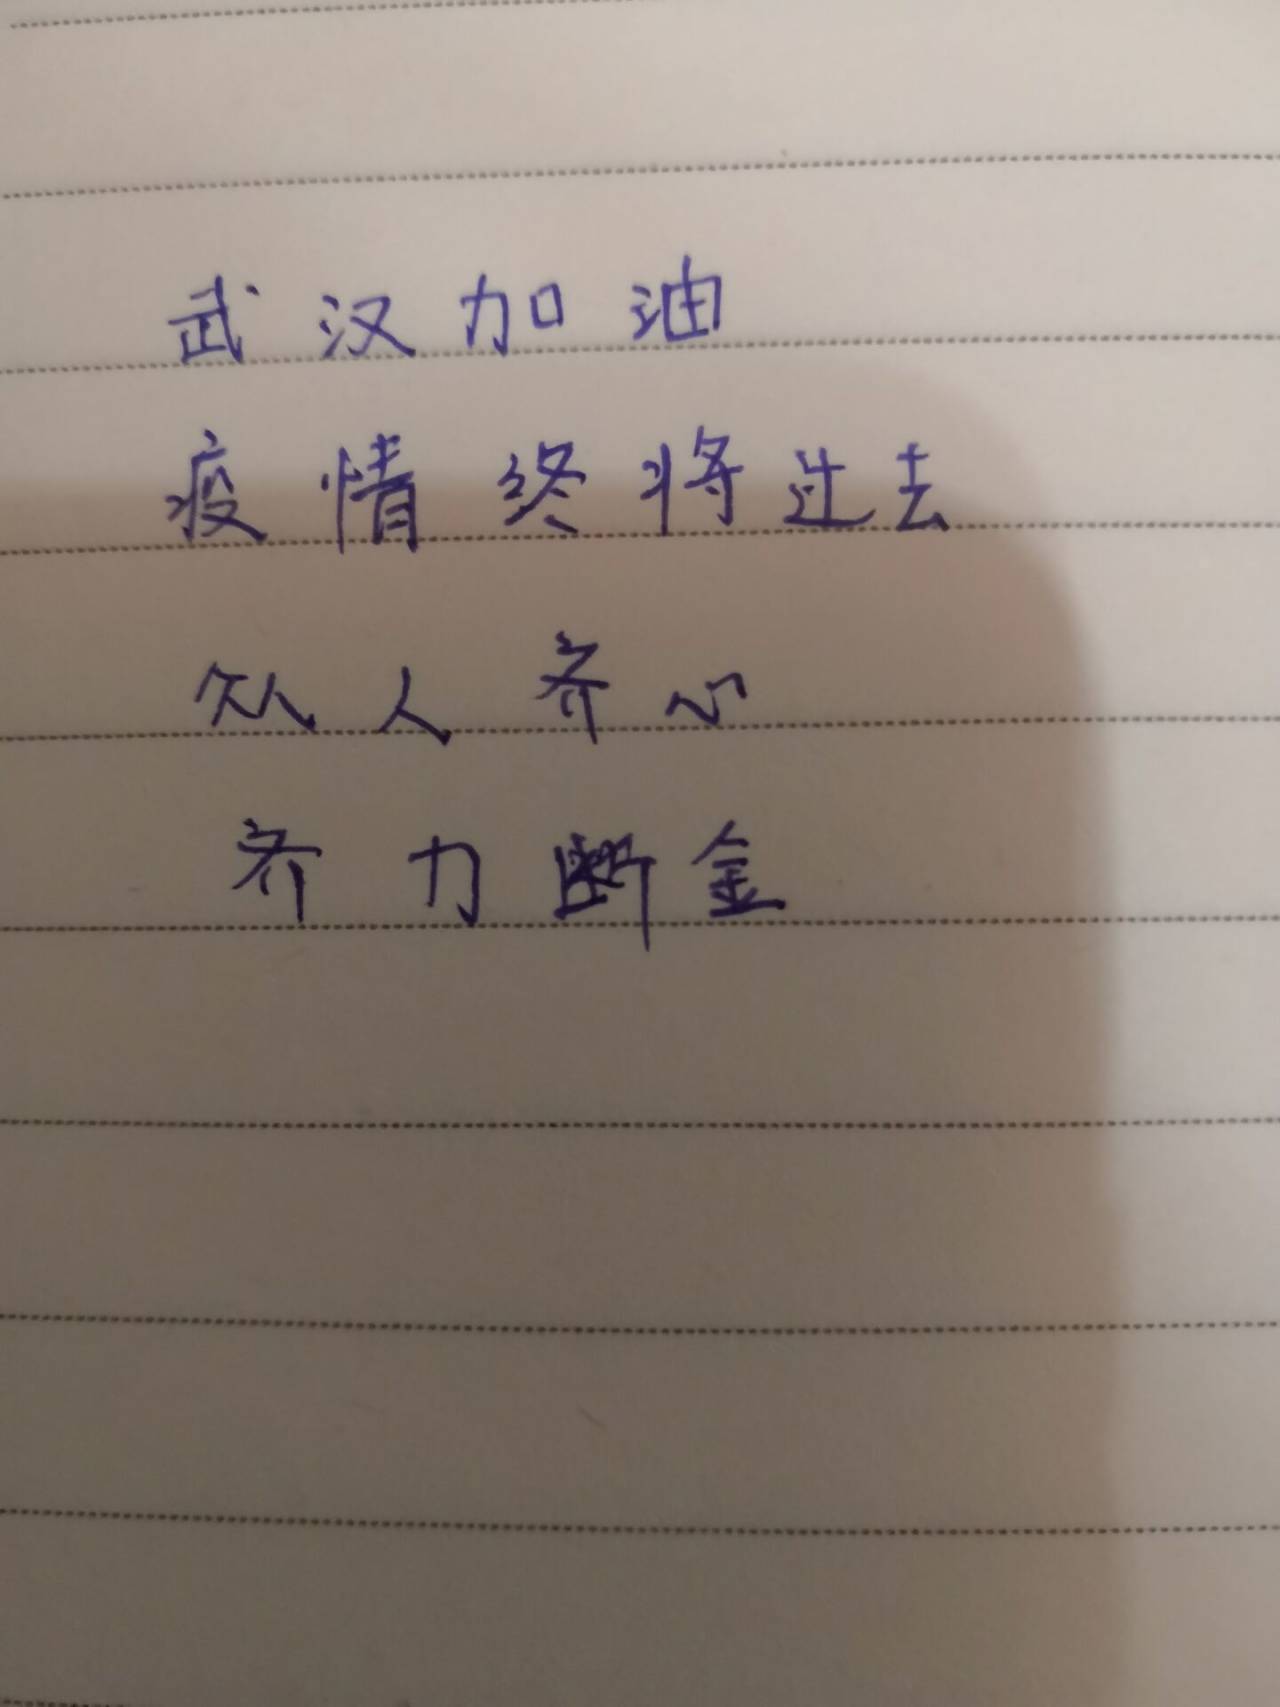 武汉加油
疫情终将过去
众人齐心
齐力断金